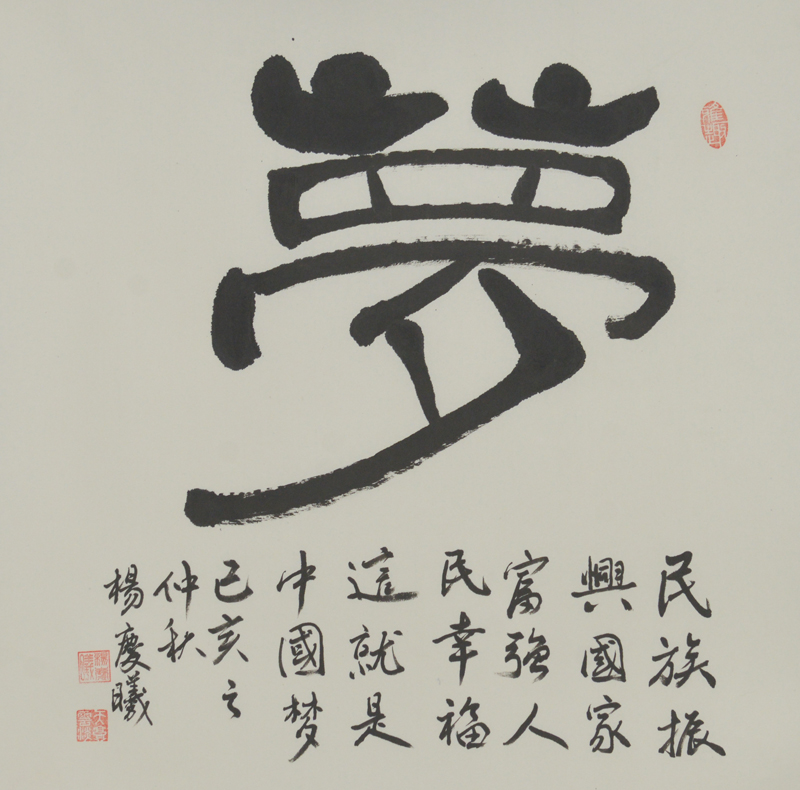 夢
民族振
興國家
富強人
民幸福
這就是
中國梦
己亥之
仲秋
楊慶曦